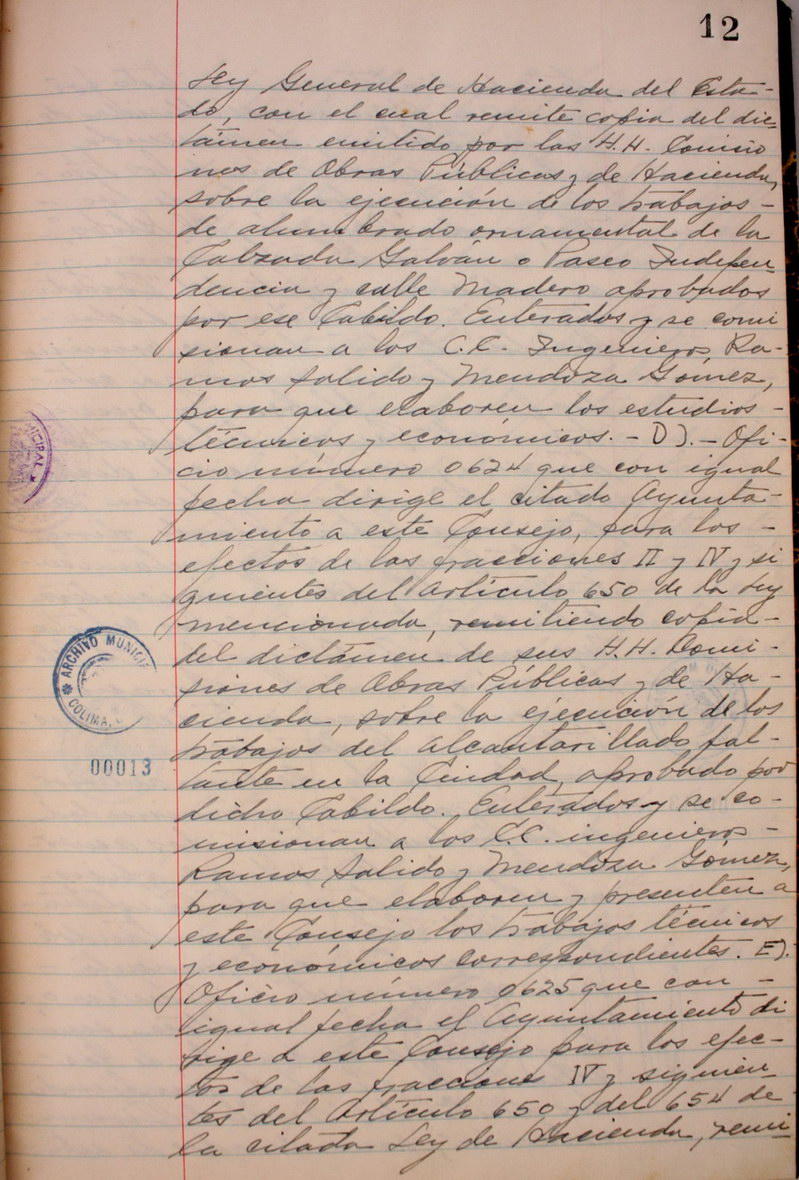 12
Ley General de Hacienda del Esta-
do, con el cual remite copia del dic-
támen emitido por las H.H. Comisio
nes de Obras Públicas y de Hacienda,
sobre la ejecución de los trabajos -
de alumbrado ornamental de la
Calzada Galván o Paseo Indepen
dencia y calle Madero aprobados
por ese Cabildo. Enterados y se comi
sionan a los C.C. Ingenieros, Ra-
mos Salido y Mendoza Gómez,
para que elaboren los estudios -
técnicos y económicos. - D). - Ofi-
cio número 0624 que con igual
fecha dirige el citado Ayunta-
miento a este Consejo, para los -
efectos de las fracciones II y IV y si
guientes del Artículo 650 de la Ley
mencionada, remitiendo copia -
del dictámen de sus H.H. Comi-
siones de Obras Públicas y de Ha-
cienda, sobre la ejecución de los
trabajos del alcantarillado fal-
tante en la Ciudad, aprobado por
dicho Cabildo. Enterados y se co-
misionan a los C.C. ingenieros -
Ramos Salido y Mendoza Gómez,
para que elaboren y presenten a
este Consejo los trabajos técnicos
y económicos correspondientes. E).
Oficio número 0625 que con -
igual fecha el Ayuntamiento di
rige a este Consejo para los efec-
tos de las fracciones IV y siguien
tes del Artículo 650 y del 654 de
la citada Ley de Hacienda, remi-
ICIPAL
ARCHIVO MUNICI
COLIMA,
00013